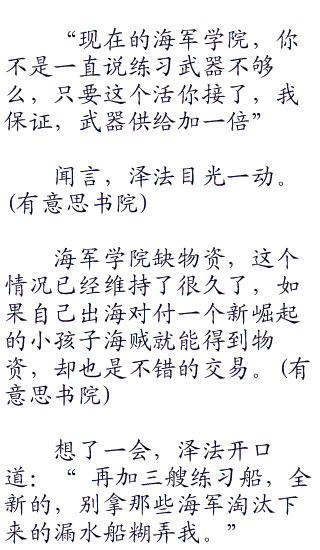 “现在的海军学院，你
不是一直说练习武器不够
么，只要这个活你接了，我
保证，武器供给加一倍”
闻言，泽法目光一动。
(有意思书院)
海军学院缺物资，这个
情况已经维持了很久了，如
果自己出海对付一个新崛起
的小孩子海贼就能得到物
资，却也是不错的交易。(有
意思书院)
想了一会，泽法开口
道：“ 再加三艘练习船，全
新的，别拿那些海军淘汰下
来的漏水船糊弄我。”